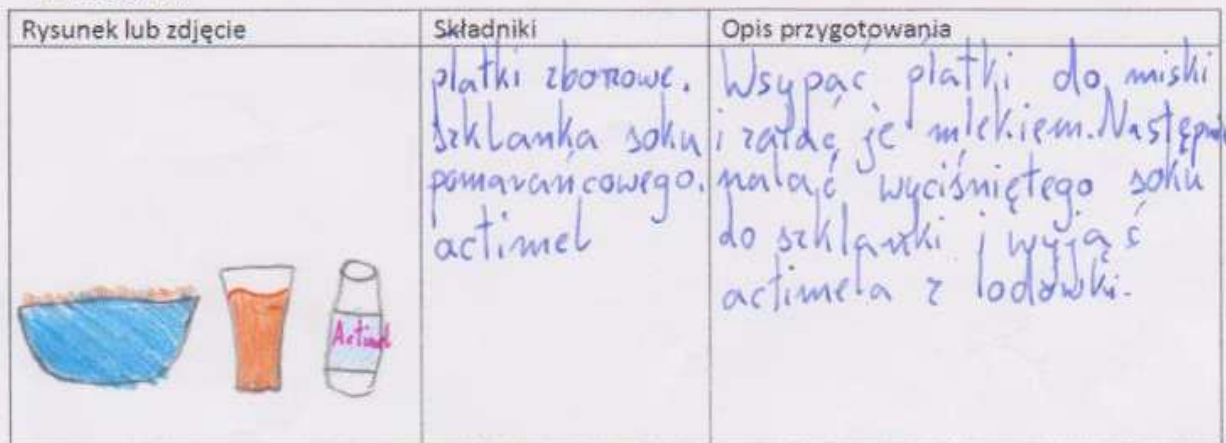 Rysunek lub zdjęcie
Składniki
Opis przygotowania
płatki zbożowe.
szklanka soku
pomarańcowego.
actimel
Wsypać płatki do miski
i zalać je mlekiem. Następnie
nalać wyciśniętego soku
do szklanki i wyjąć
actimela z lodówki.
Actimel